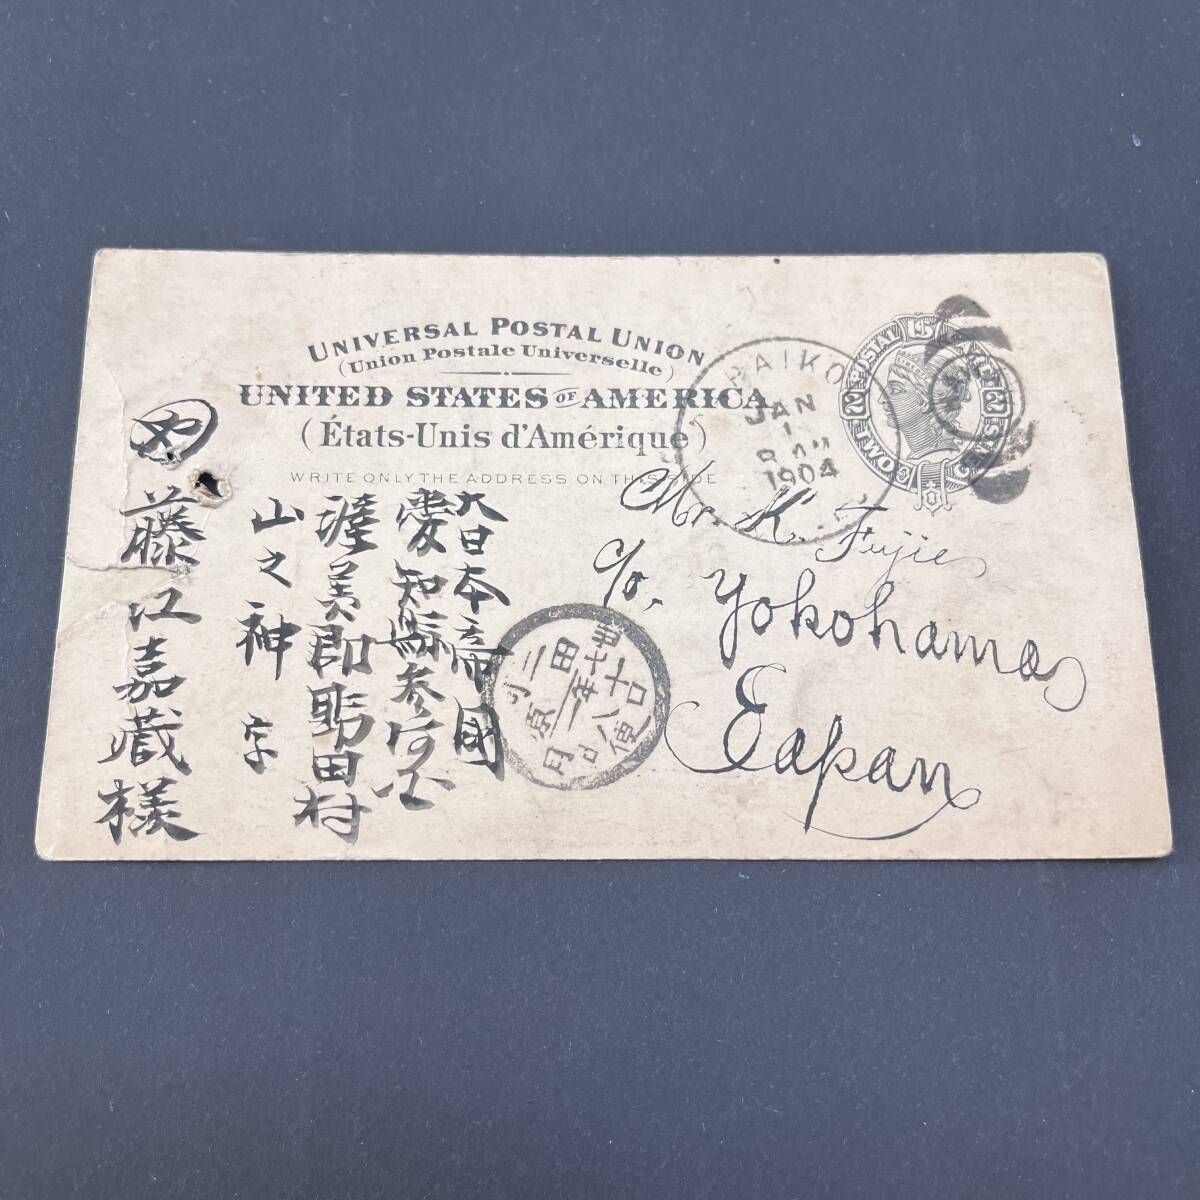 UNIVERSAL POSTAL UNION
(Union Postale Universelle)
UNITED STATES OF AMERICA
(États-Unis d'Amérique)
WRITE ONLY THE ADDRESS ON THIS SIDE
POSTAL CARD
TWO
PAIKO
JAN
1
1904
Mr. K. Fujie
c/o, Yokohama
Eapan
大日本帝国
愛知縣参河国
渥美郡野田村
山之神
字
藤江嘉蔵様
田口
二十八便
原
月